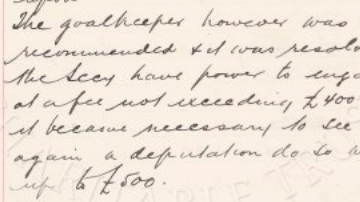 The goalkeeper however was
recommended & it was resol
the Secy have power to enga
at a fee not exceeding £400
it became necessary to see
again a deputation do so a
up to £500.